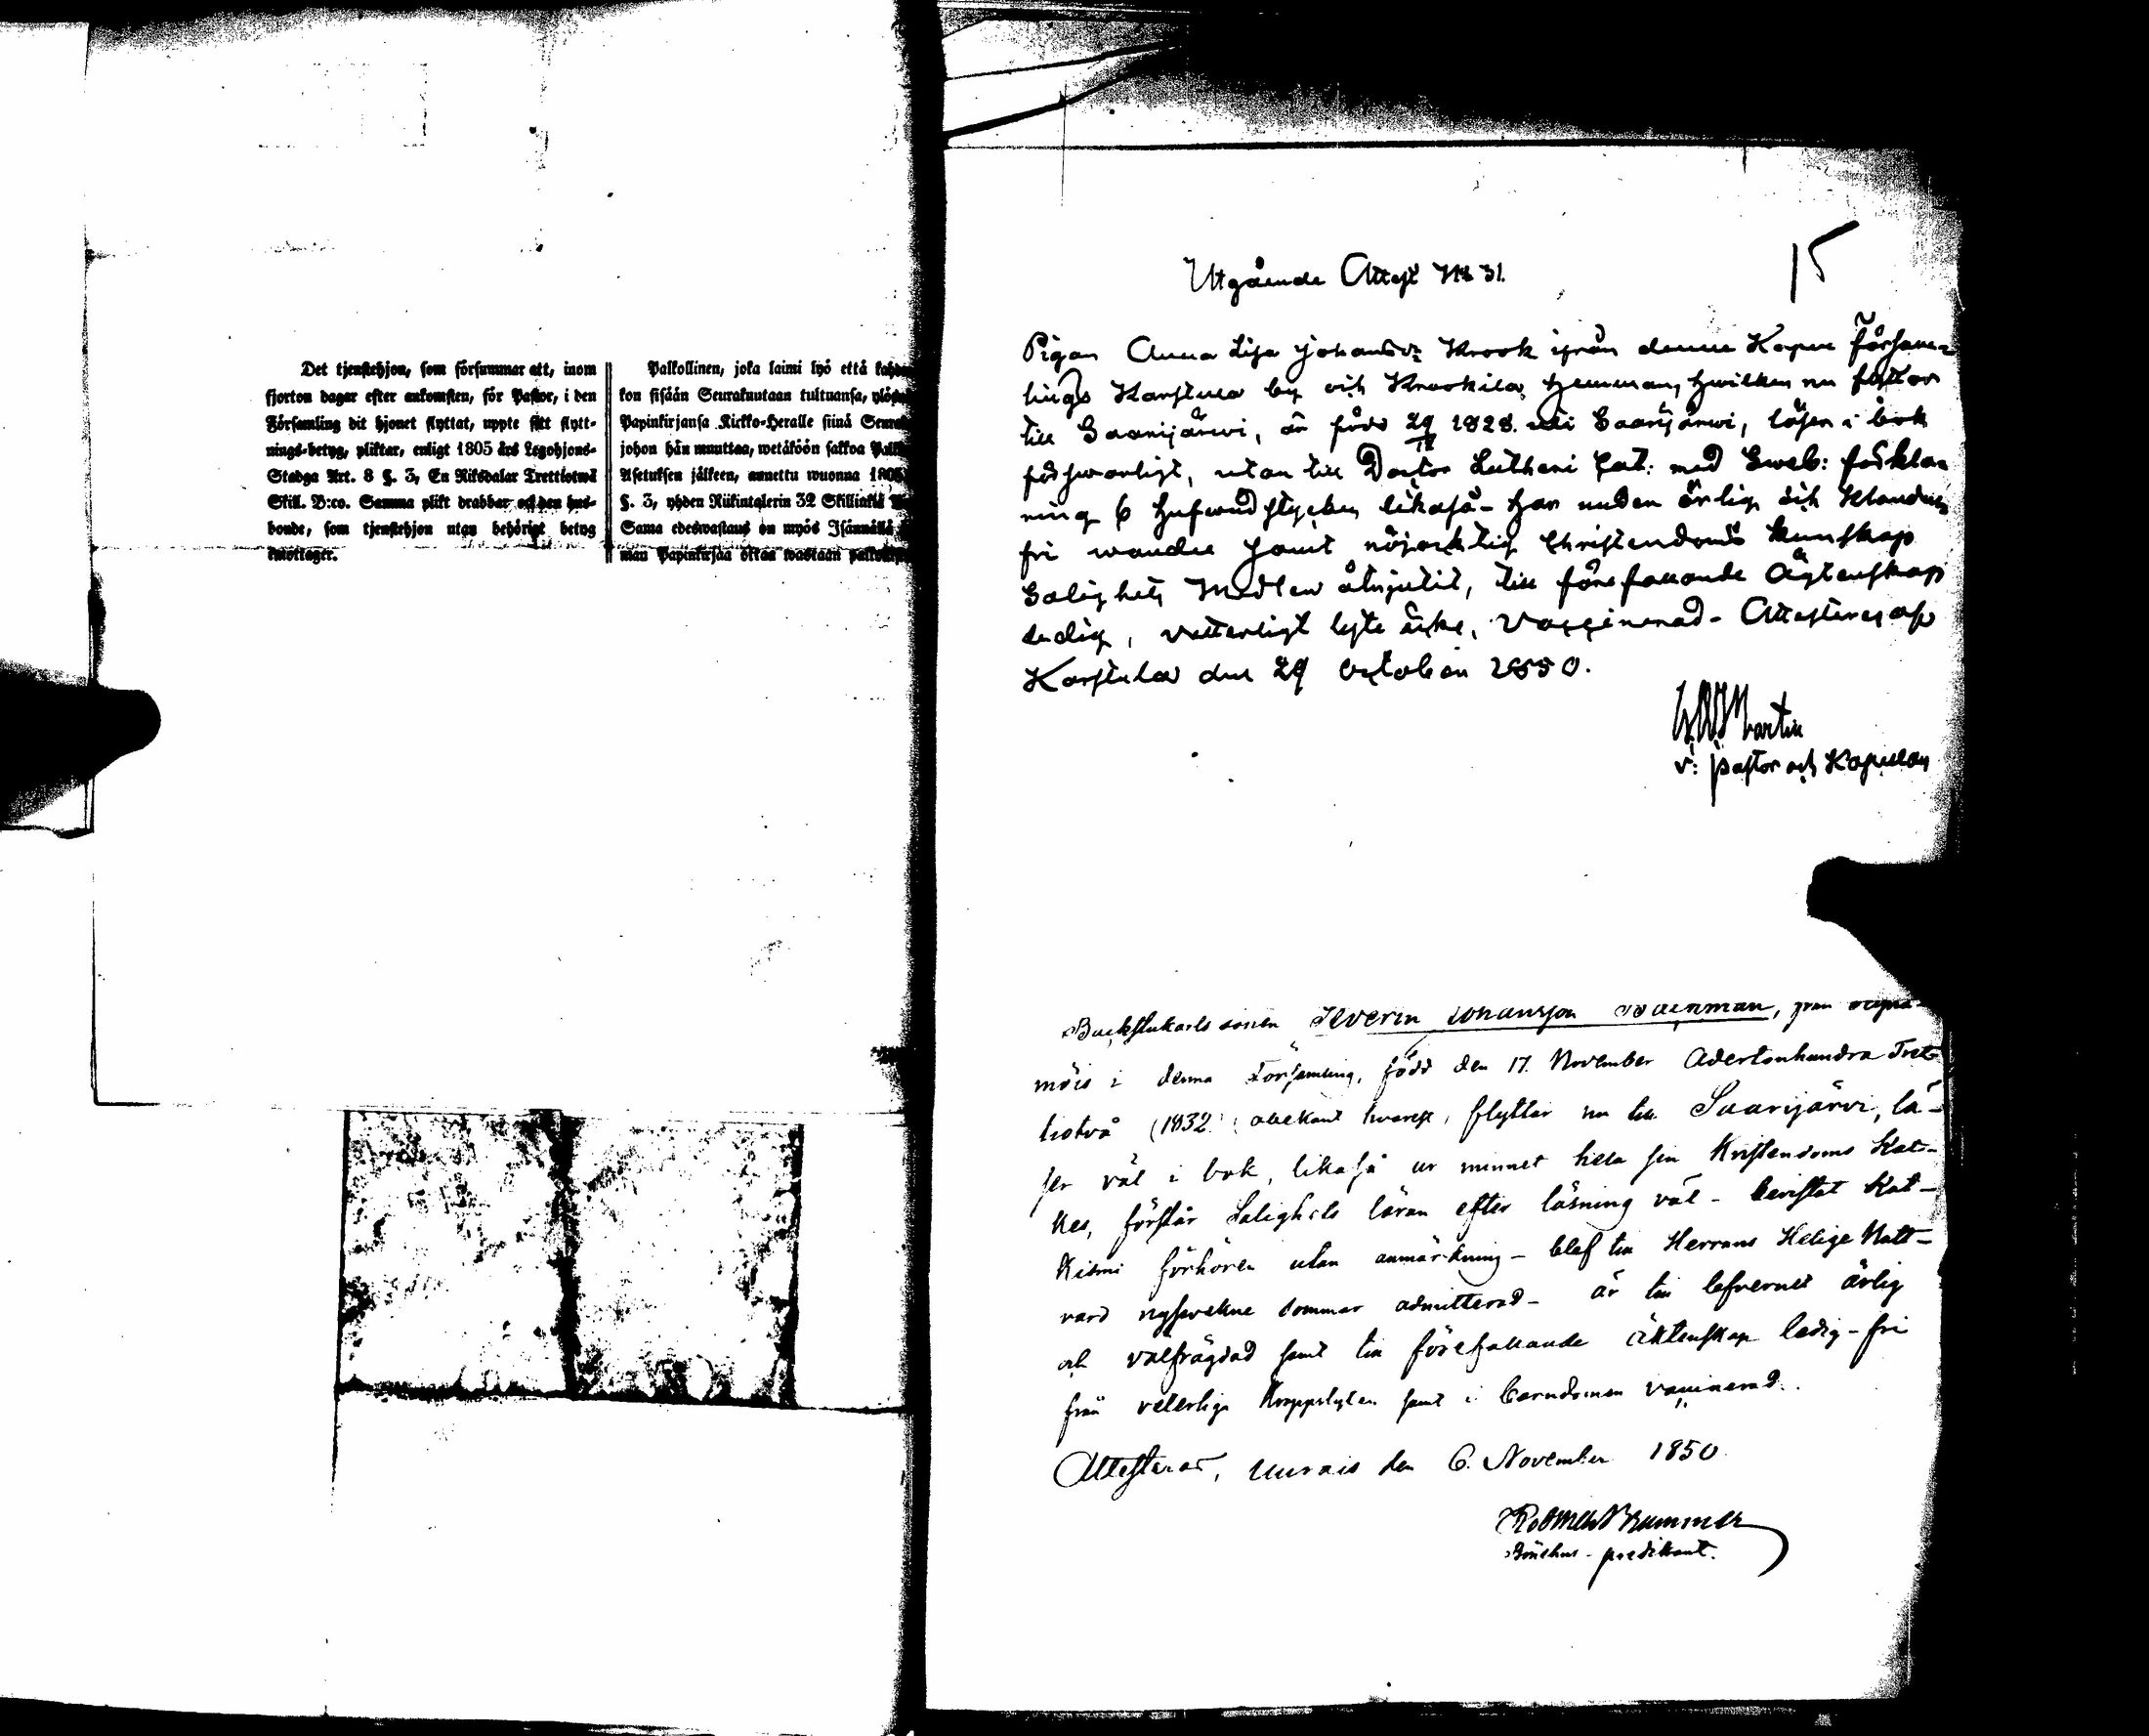 Det tjenstehjon, som försummar att, inom
fjorton dagar efter ankomsten, för Pastor, i den
Församling dit hjonet flyttat, uppte sitt flytt-
nings-betyg, pliktar, enligt 1805 års Legohjons-
Stadga Art. 8 §. 3, En Riksdalar Trettiotwå
Skill. B:co. Samma plikt drabbar och den hus-
bonde, som tjenstehjon utan behörigt betyg
emottager.
Palkollinen, joka laimi lyö että
kon sisään Seurakuntaan tultuansa,
Papinkirjansa Kirkko-Heralle siinä
johon hän muuttaa, wetäköön sakkoa
Asetuksen jälkeen, annettu wuonna 1805
§. 3, yhden Riikintalerin 32 Skillinkiä
Sama edeswastaus on myös Isännällä
man Papinkirjaa ottaa wastaan
15
Utgående Attest No 31.
Pigan Anna Lisa Johansdr Krook ifrån denne Kapell Församm-
lings Karstula by och Krookila Hemman, hwilken nu flyttar
till Saarijärwi, är född 29 1828. uti Saarijärwi, läser i bok
förswarligt, utan till Doctor Lutheri Cat: med Sweb: förkla-
ring 6 Hufwudstycken likaså - har under ärlig och klander
fri wandel samt nöjacktig Christendoms kunskap
Salighets Medlen åtnjutit, till förefallande Ägtenskap
ledig, vetterligt lyte icke, Vaccinerad - Attesteras af
Karstula den 29 October 1850.
Martin
v: Pastor och Kapellan
Backstukarls sonen Severin Johansson, från
möis i denna Församling, född den 17. November Adertonhundra Tret-
tiotvå (1832) obekant hvarest, flyttar nu till Saarijärvi, lä-
ser väl i bok, likaså ur minnet hela sin Kristendoms Kat-
kes, förstår Salighets läran efter läsning väl - bevistat Kat-
kismi förhören utan anmärkning - blef till Herrans Helige Natt-
vard nyssvekne sommar admitterad - är till lefvernet ärlig
och välfrägdad samt till förefallande äktenskap ledig - fri
från veterliga kroppslyten samt i barndomen vaccinerad.
Attesterar, Uurais den 6. November 1850
Brummer
Brukspredikant.